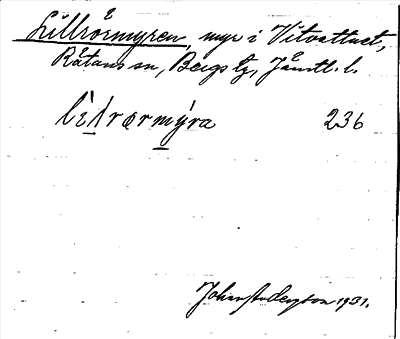 Lillrörmyren, myr i Vitvattnet,
Råtans sn, Bergs tg, Jämtl. l.
lìl̠rœrm̠ýra 236
Johan Anderson 1931.